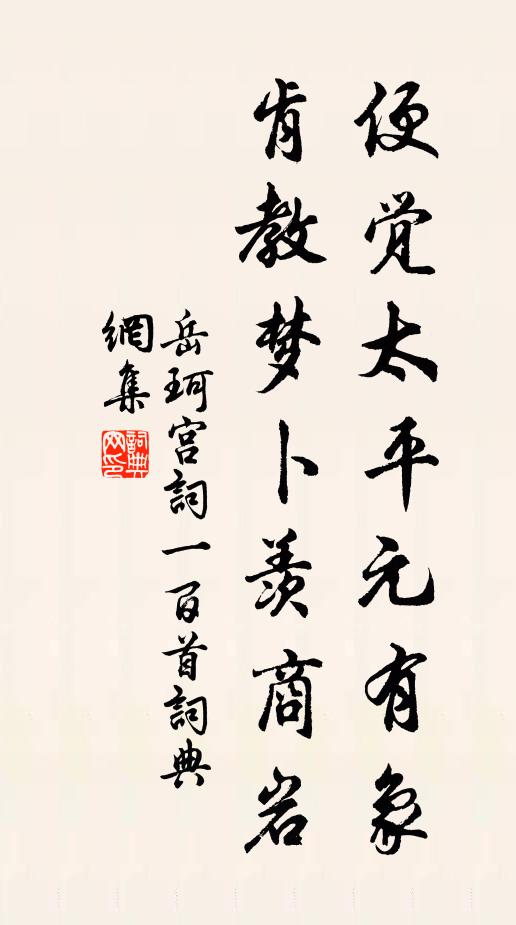 便觉太平元有象
肯教梦卜羡商岩
岳珂宫詞一百首詞典
網集
詞典
网印